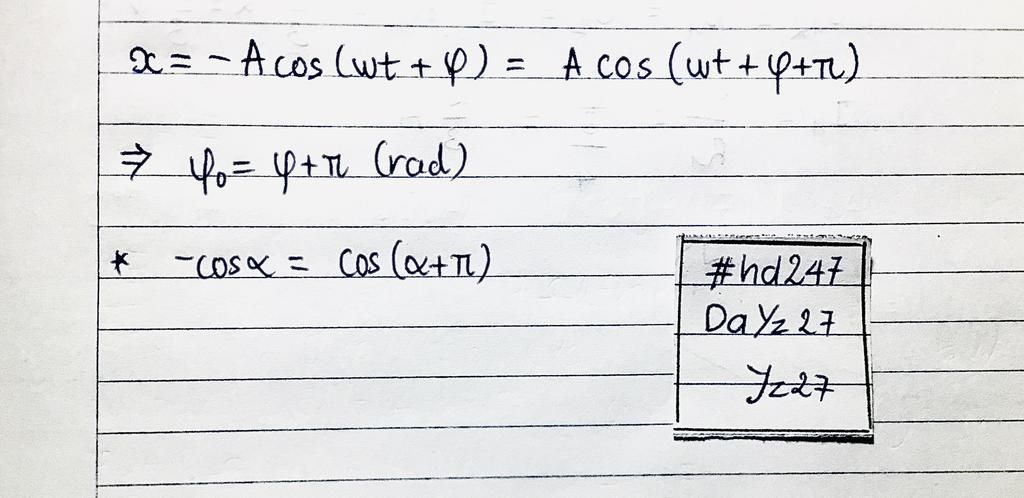 x = - A cos (wt + φ) = A cos (wt + φ + π)
⇒ φ₀ = φ + π (rad)
* -cosα = cos (α+π)
#hd247
DaYz27
Yz27